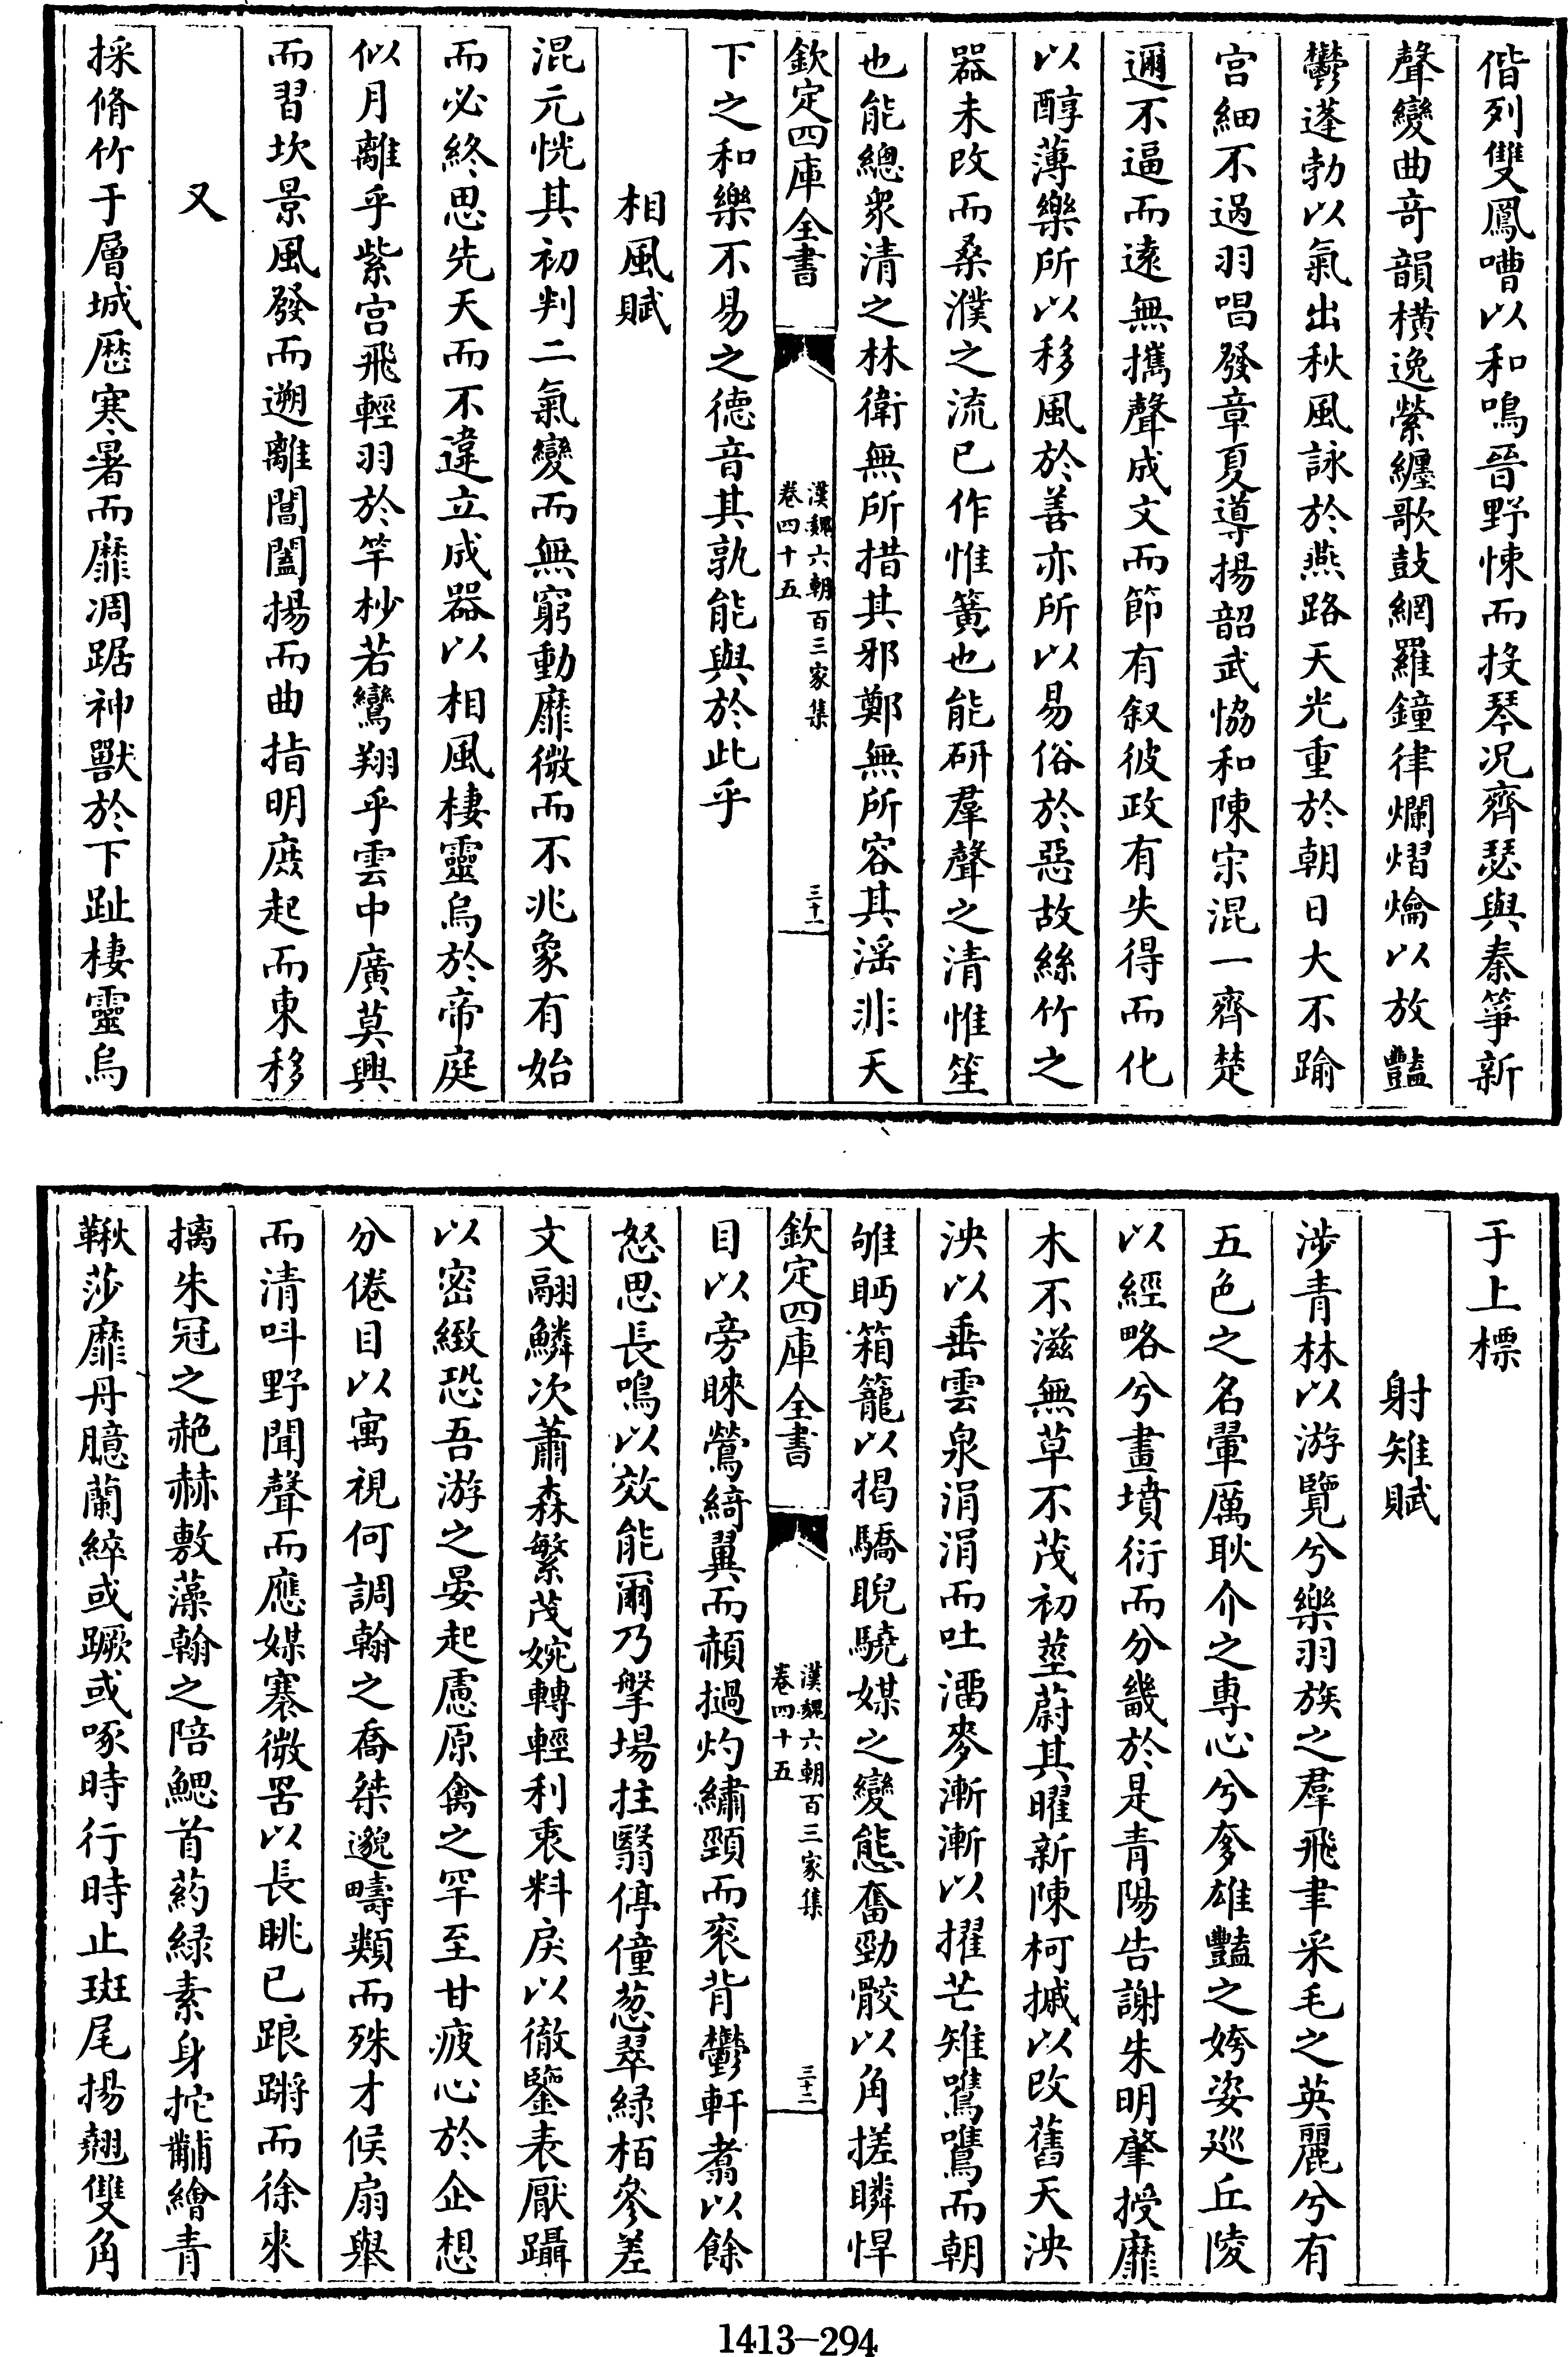 偕列雙鳳嘈以和鳴晉野悚而投琴况齊瑟與秦箏新
聲變曲竒韻横逸縈纏歌鼓網羅鐘律爛熠爚以放豔
鬱蓬勃以氣出秋風詠於燕路天光重於朝日大不踰
宫細不過羽唱發章夏導揚韶武恊和陳宋混一齊楚
邇不逼而逺無攜聲成文而節有叙彼政有失得而化
以醇薄樂所以移風於善亦所以易俗於惡故絲竹之
器未改而桑濮之流已作惟簧也能研羣聲之清惟笙
也能總衆清之林衛無所措其邪鄭無所容其滛非天
欽定四庫全書
漢魏六朝百三家集
卷四十五
三十一
下之和樂不易之德音其孰能與於此乎
相風賦
混元恍其初判二氣變而無窮動靡微而不兆象有始
而必終思先天而不違立成器以相風棲靈烏於帝庭
似月離乎紫宫飛輕羽於竿杪若鸞翔乎雲中廣莫興
而習坎景風發而遡離閶闔揚而曲指明庶起而東移
又
採脩竹于層城厯寒暑而靡凋踞神獸於下趾棲靈烏
于上標
射雉賦
涉青林以游覽兮樂羽族之羣飛聿采毛之英麗兮有
五色之名翬厲耿介之專心兮奓雄豔之姱姿廵丘陵
以經略兮畫墳衍而分畿於是青陽告謝朱明肇授靡
木不滋無草不茂初莖蔚其曜新陳柯槭以改舊天泱
泱以垂雲泉涓涓而吐溜麥漸漸以擢芒雉鷕鷕而朝
雊眄箱籠以揭驕睨驍媒之變態奮勁骹以角搓瞵悍
欽定四庫全書
漢魏六朝百三家集
卷四十五
三十二
目以旁睞鶯綺翼而赬撾灼繡頸而衮背鬱軒翥以餘
怒思長鳴以效能爾乃擥場拄翳停僮葱翠緑栢參差
文翮鱗次蕭森繁茂婉轉輕利衷料戾以徹鑒表厭躡
以密緻恐吾游之晏起慮原禽之罕至甘疲心於企想
分倦目以寓視何調翰之喬桀邈疇類而殊才候扇舉
而清呌野聞聲而應媒褰微罟以長眺已踉蹡而徐來
摛朱冠之赩赫敷藻翰之陪鰓首葯緑素身拕黼繪青
鞦莎靡丹臆蘭綷或蹶或啄時行時止斑尾揚翹雙角
1413-294